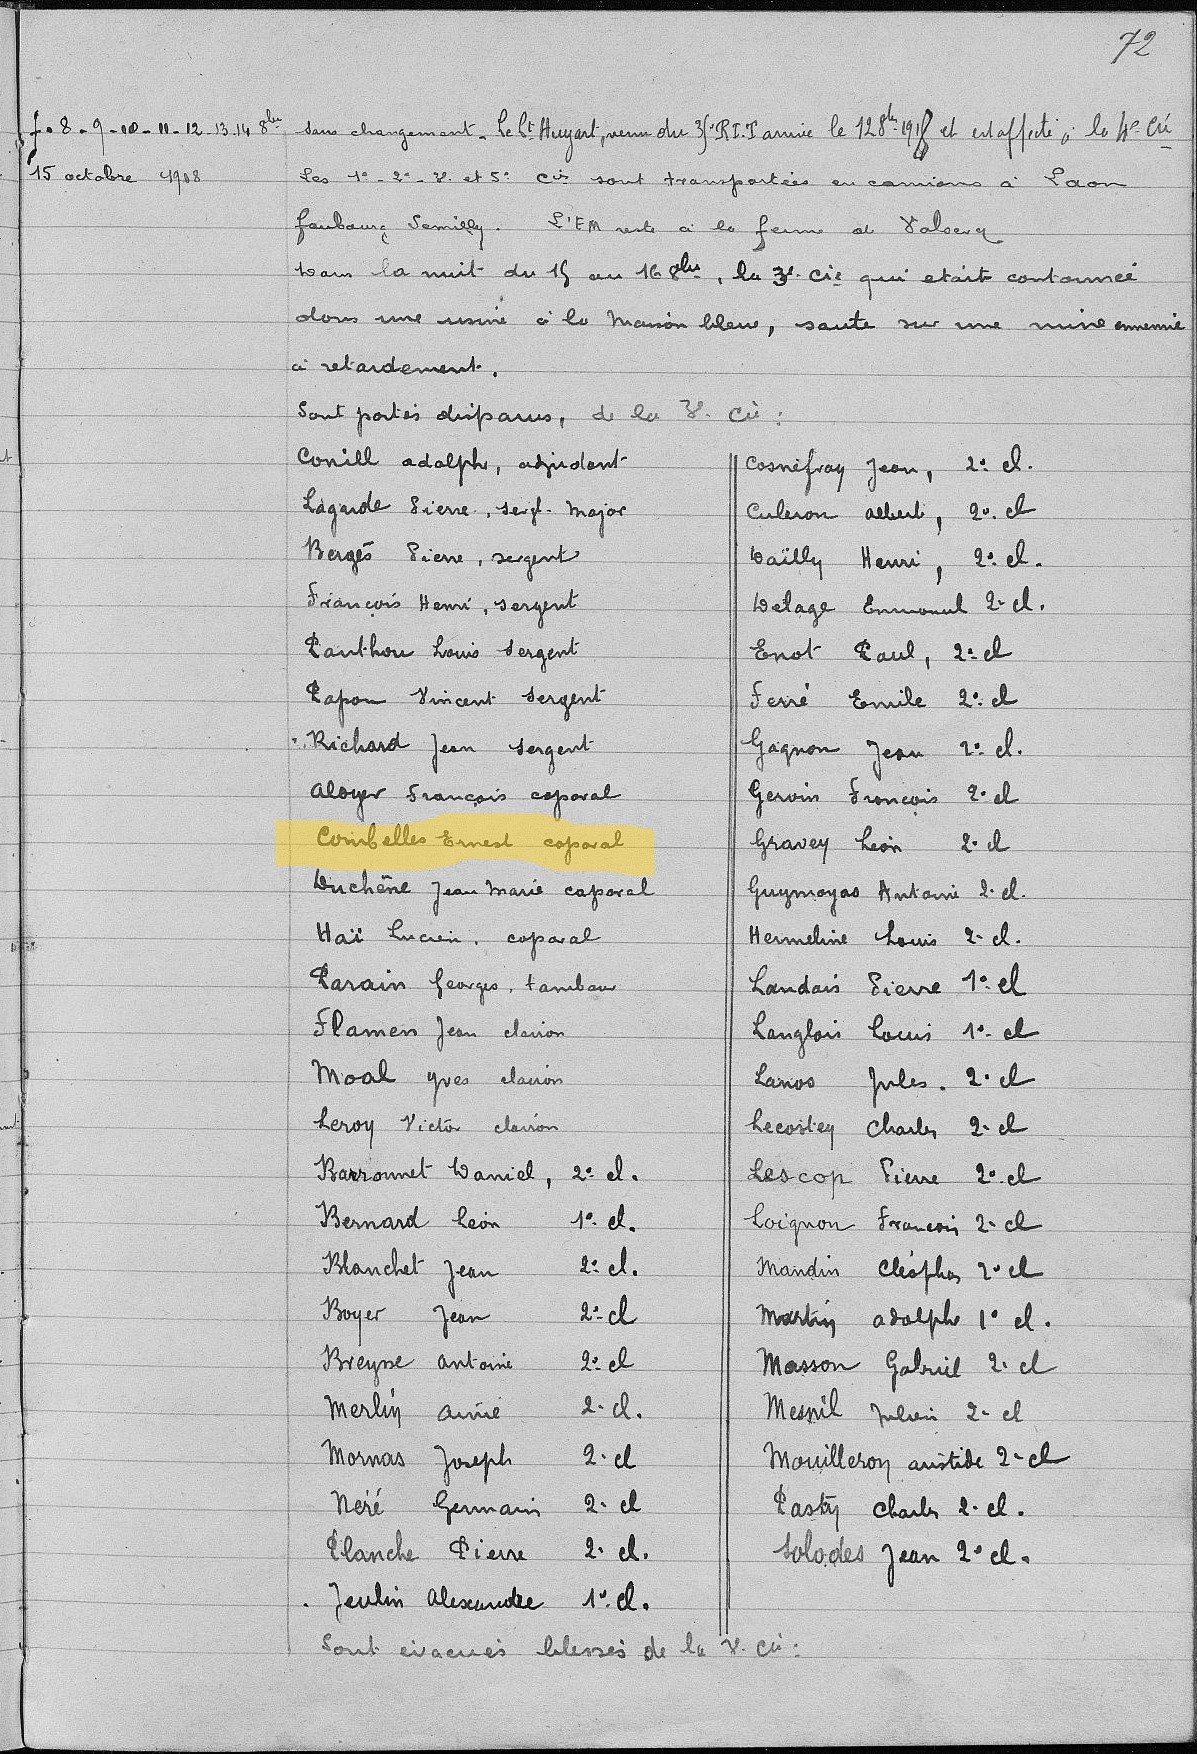 72
7-8-9-10-11-12-13-14 8bre sans changement. Le Lt Huyart, venu du 35e RIT arrive le 12 8bre 1918 et est affecté à la 4e Cie
15 octobre 1918 Les 1e-2e-3e et 5e Cies sont transportées en camions à Laon
faubourg Semilly. L'EM reste à la ferme de
Dans la nuit du 15 au 16 8bre, la 3e Cie qui était cantonnée
dans une usine à la maison bleue, saute sur une mine ennemie
à retardement.
Sont portés disparus, de la 3e Cie :
Conill adolphe, adjudant
Lagarde Pierre, sergt. Major
Bergès Pierre, sergent
François Henri, sergent
Panthou Louis sergent
Papon Vincent sergent
Richard Jean sergent
Aloyer François caporal
Combelles Ernest caporal
Duchêne Jean Marie caporal
Haï Lucien, caporal
Parain Georges, tambour
Flamen Jean clairon
Moal Yves clairon
Leroy Victor clairon
Barronnet Daniel, 2e cl.
Bernard Léon 1e cl.
Blanchet Jean 2e cl.
Boyer Jean 2e cl
Breysse antoine 2e cl
Merlin aimé 2e cl.
Mornas Joseph 2e cl
Néré Germain 2e cl
Planche Pierre 2e cl.
Jeulin Alexandre 1e cl.
Cosnefray Jean, 2e cl.
Culeron albert, 2e cl
Daïlly Henri, 2e cl.
Delage Emmanuel 2e cl.
Enot Paul, 2e cl
Ferré Emile 2e cl
Gagnon Jean 2e cl.
Gervin François 2e cl
Gravey Léon 2e cl
Guymoyas Antoine 2e cl.
Hermeline Louis 2e cl.
Landais Pierre 1e cl
Langlois Louis 1e cl
Lanos Jules. 2e cl
Lecostey Charles 2e cl
Lescop Pierre 2e cl
Loignon François 2e cl
Mandin Cléophas 2e cl
Martin adolphe 1e cl.
Masson Gabriel 2e cl
Mesnil Julien 2e cl
Mouilleron aristide 2e cl
Pasty Charles 2e cl.
Solodes Jean 2e cl.
Sont évacués blessés de la 3e Cie :